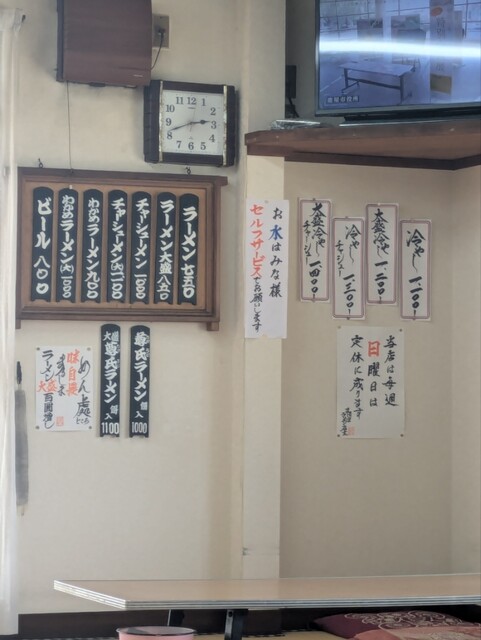 ラーメン 七五〇
ラーメン大盛 八五〇
チャシューメン 一〇〇〇
チャシューメン(大)一一〇〇
わかめラーメン 九〇〇
わかめラーメン(大)一〇〇〇
ビール 八〇〇
尊氏ラーメン 餅入 1000
大盛 尊氏ラーメン 餅入 1100
めん処
味自慢
ラーメン大盛百円増し
お水はみな様
セルフサービスでお願いします
冷やし 一、一〇〇
大盛冷やし 一、二〇〇
冷やしチャシュー 一、三〇〇
大盛冷やしチャシュー 一、四〇〇
当店は毎週
日曜日は
定休に成ります
12 1 2 3 4 5 6 7 8 9 10 11